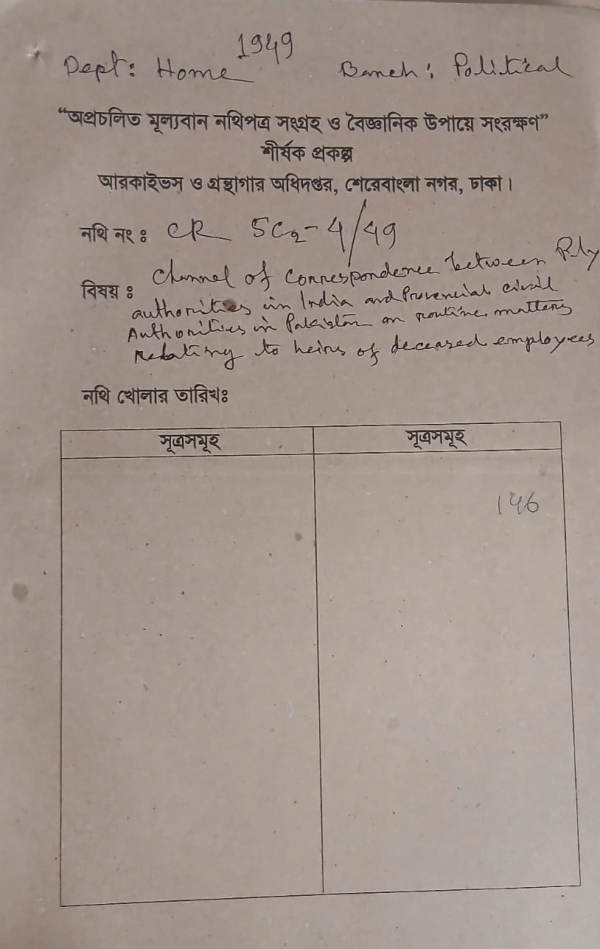 1949
Dept: Home Banch: Political
“অপ্রচলিত মূল্যবান নথিপত্র সংগ্রহ ও বৈজ্ঞানিক উপায়ে সংরক্ষণ”
শীর্ষক প্রকল্প
আরকাইভস ও গ্রন্থাগার অধিদপ্তর, শেরেবাংলা নগর, ঢাকা।
নথি নং ঃ CR 5C2-4/49
বিষয় ঃ Channel of Correspondence between Rly
authorities in India and Provencial civil
Authorities in Pakistan on routine matters
relating to heirs of deceased employees
নথি খোলার তারিখঃ
সূত্রসমূহ সূত্রসমূহ
146